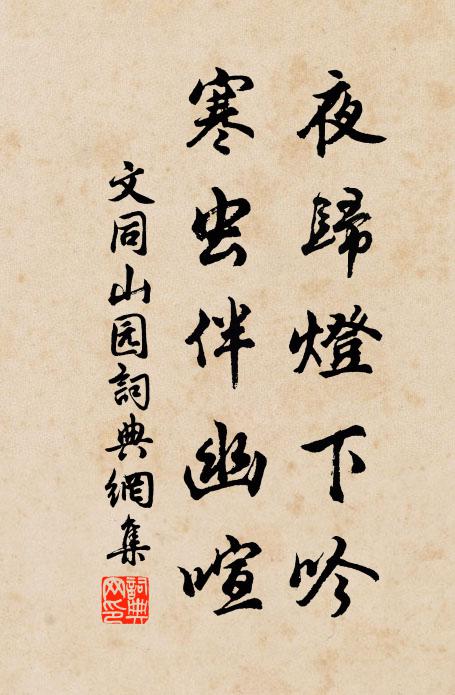 夜歸燈下吟
寒虫伴幽喧
文同山园詞典網集
詞典网印